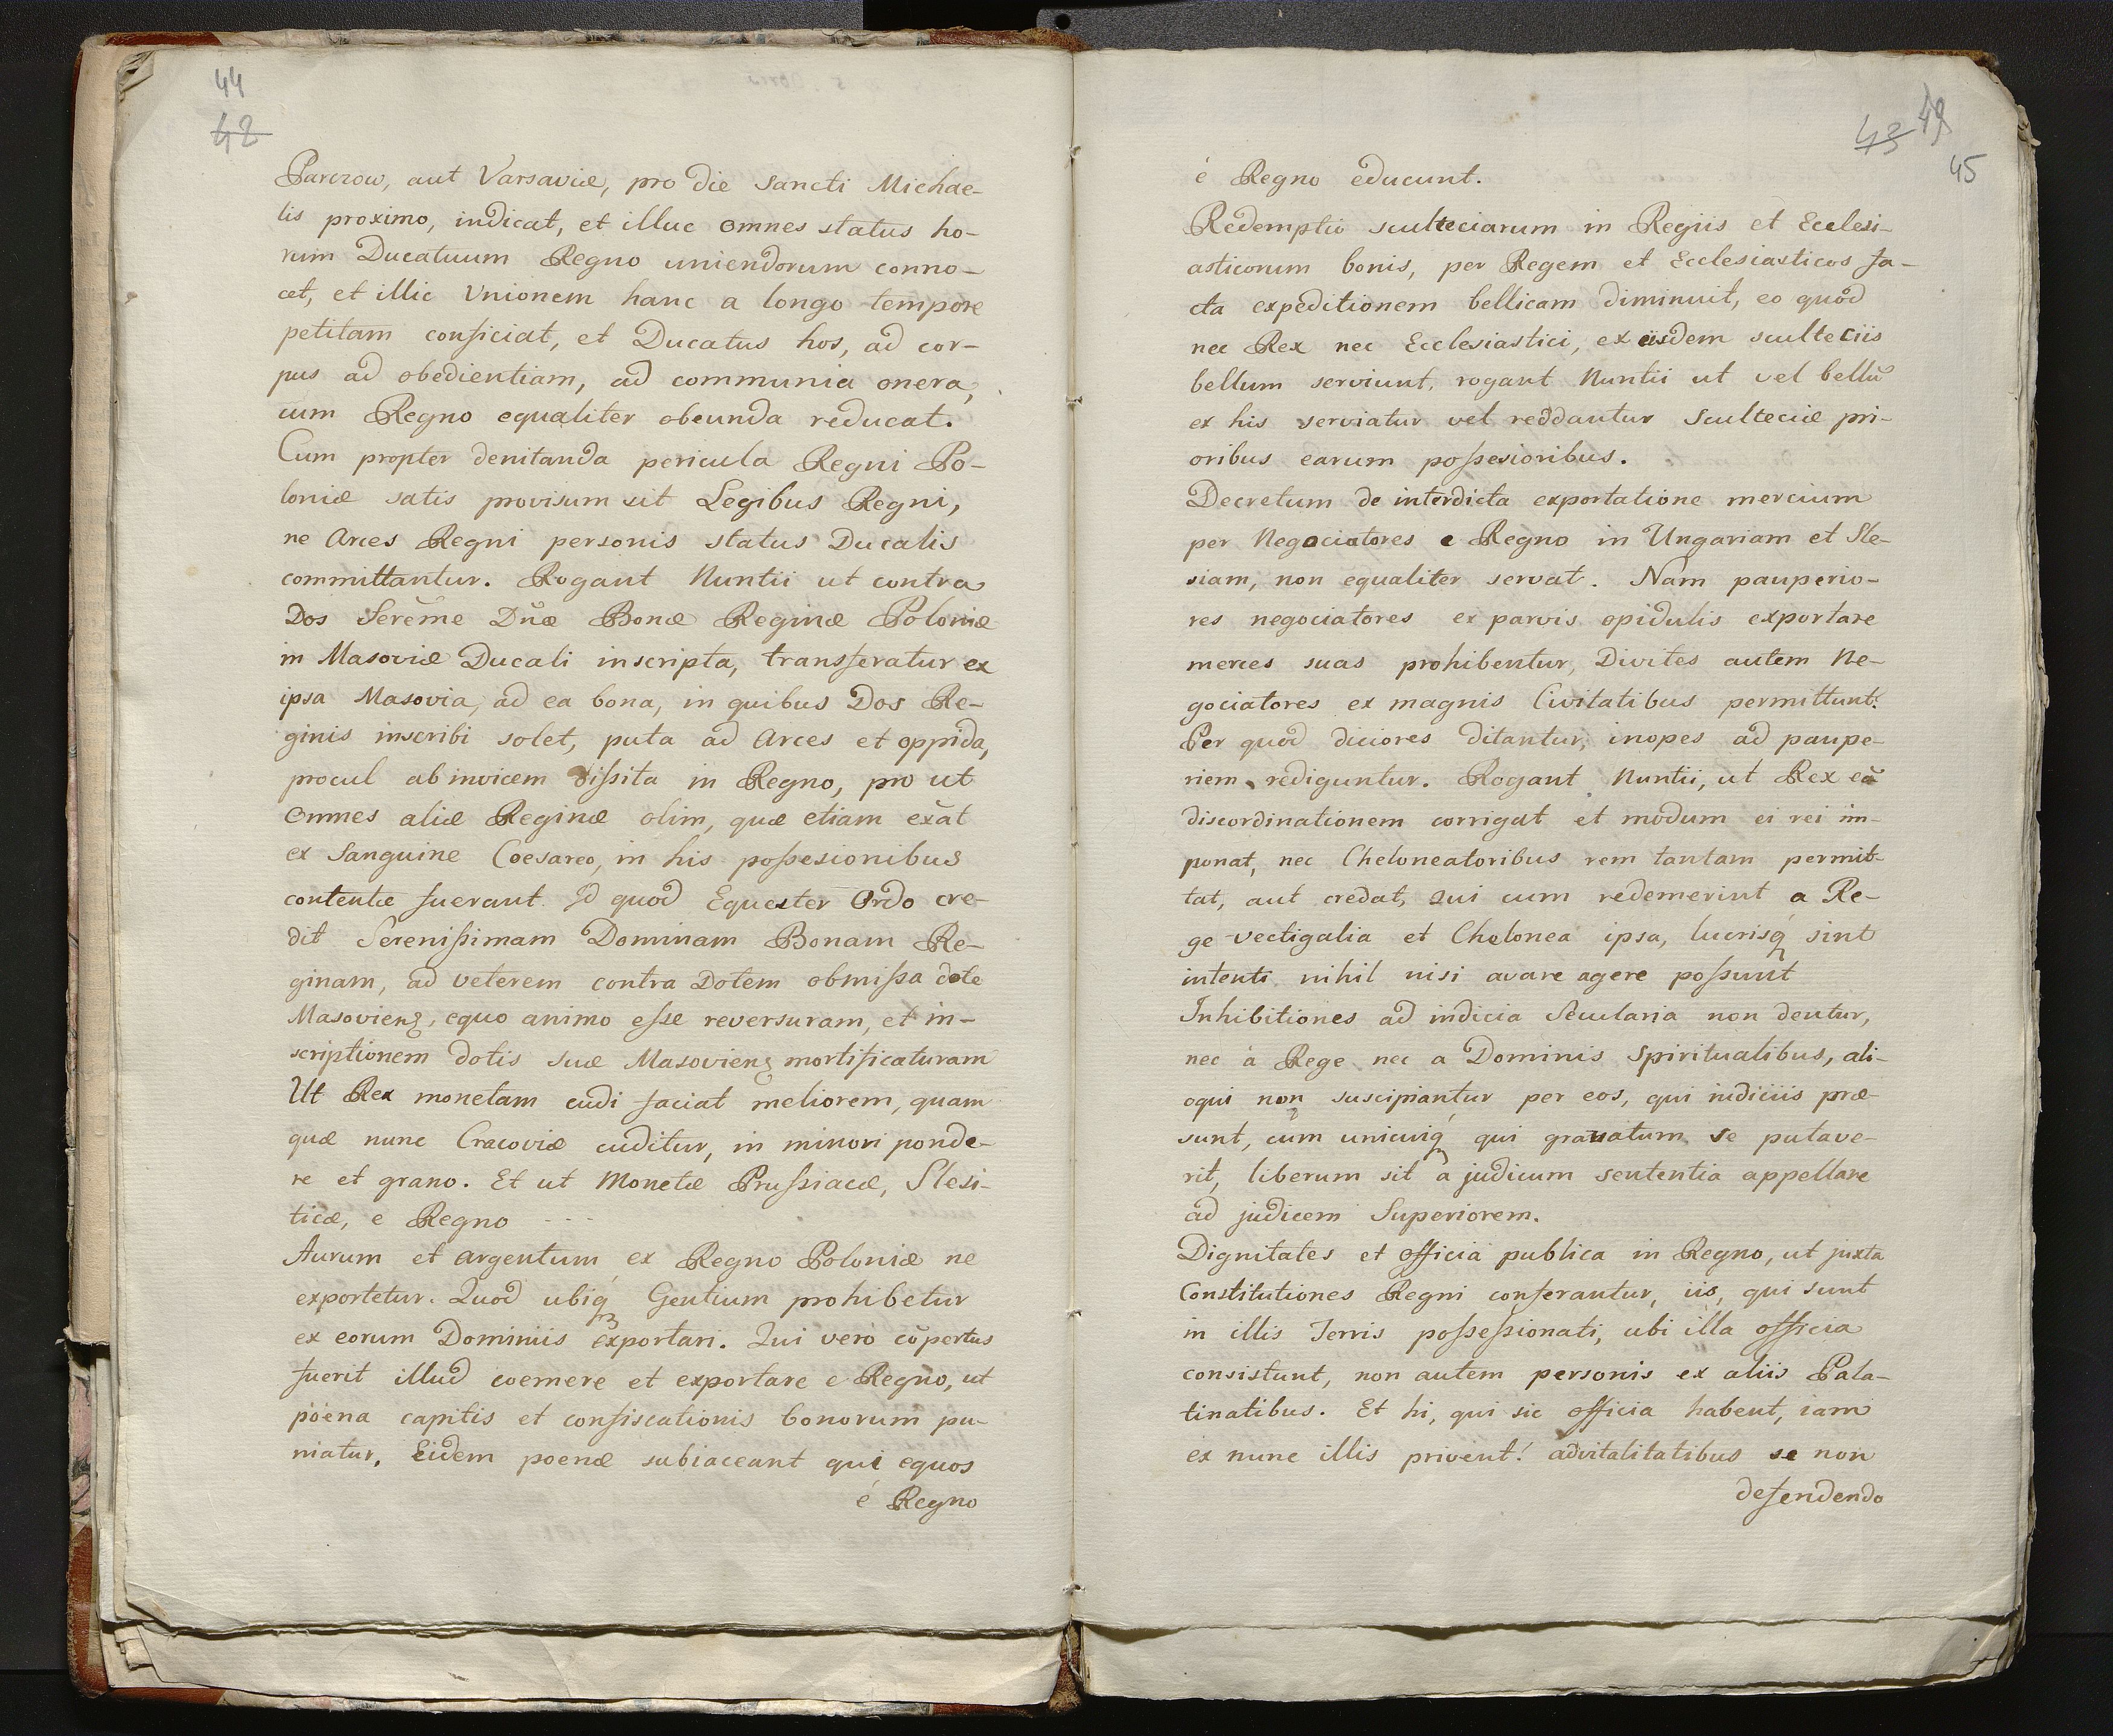 44
42
Parczow, aut Varsaviæ, pro die Sancti Michae-
lis proximo, indicat, et illuc omnes status ho-
rum Ducatuum Regno uniendorum conno-
cet, et illic Vnionem hanc a longo tempore
petitam conficiat, et Ducatus hos, ad cor-
pus ad obedientiam, ad communia onera,
cum Regno equaliter obeunda reducat.
Cum propter denitanda pericula Regni Po-
loniæ satis provisum sit Legibus Regni,
ne Arces Regni personis status Ducalis
committantur. Rogant Nuntii ut contra
Dos Serēme Dnæ Bonæ Reginæ Poloniæ
in Masoviæ Ducali inscripta, transferatur ex
ipsa Masovia, ad ea bona, in quibus Dos Re-
ginis inscribi solet, puta ad Arces et oppida,
procul ab invicem dissita in Regno, pro ut
omnes aliæ Reginæ olim, quæ etiam exāt
ex Sanguine Coesareo, in his possesionibus
contentæ fuerant. Id quod Equester Ordo cre-
dit Serenissimam Dominam Bonam Re-
ginam, ad veterem contra Dotem obmissa dote
Masovienȝ, equo animo esse reversuram, et in-
scriptionem dotis suæ Masovienȝ mortificaturam
Ut Rex monetam cudi faciat meliorem, quam
quæ nunc Cracoviæ cuditur, in minori ponde-
re et grano. Et ut Monetæ Prussiacæ, Slesi-
ticæ, e Regno ---
Aurum et argentum ex Regno Poloniæ ne
exportetur. Quod ubiqꝫ Gentium prohibetur
ex eorum Dominiis exportari. Qui vero cōpertus
fuerit illud coemere et exportare e Regno, ut
poena capitis et confiscationis bonorum pu-
niatur. Eidem poenæ subiaceant qui equos
é Regno
43 49
45
é Regno educunt.
Redemptio sculteciarum in Regiis et Ecclesi-
asticorum bonis, per Regem et Ecclesiasticos fa-
cta expeditionem bellicam diminuit, eo quod
nec Rex nec Ecclesiastici, ex eisdem sculteciis
bellum serviunt, rogant Nuntii ut vel bellū
ex his serviatur vel reddantur Sculteciæ pri-
oribus earum possesioribus.
Decretum de interdicta exportatione mercium
per Negociatores e Regno in Ungariam et Sle-
siam, non equaliter servat. Nam pauperio-
res negociatores ex parvis opidulis exportare
merces suas prohibentur, Divites autem Ne-
gociatores ex magnis Civitatibus permittunt:
Per quod diciores ditantur, inopes ad paupe-
riem rediguntur. Rogant Nuntii, ut Rex eā
discordinationem corrigat et modum ei rei im-
ponat, nec Cheloneatoribus rem tantam permit-
tat, aut credat, qui cum redemerint a Re-
ge vectigalia et Chelonea ipsa, lucrisqꝫ sint
intenti nihil nisi avare agere possunt
Inhibitiones ad indicia Secularia non dentur,
nec à Rege nec a Dominis Spiritualibus, ali-
oqui non suscipiantur per eos, qui iudiciis præ-
sunt, cum unicuiqꝫ qui gravatum se putave-
rit, liberum sit a judicum sententia appellare
ad judicem Superiorem.
Dignitates et officia publica in Regno, ut juxta
Constitutiones Regni conferantur, iis, qui sunt
in illis Terris possessionati, ubi illa officia
consistunt, non autem personis ex aliis Pala-
tinatibus. Et hi, qui sic officia habent, iam
ex nunc illis privent! advitalitatibus se non
defendendo